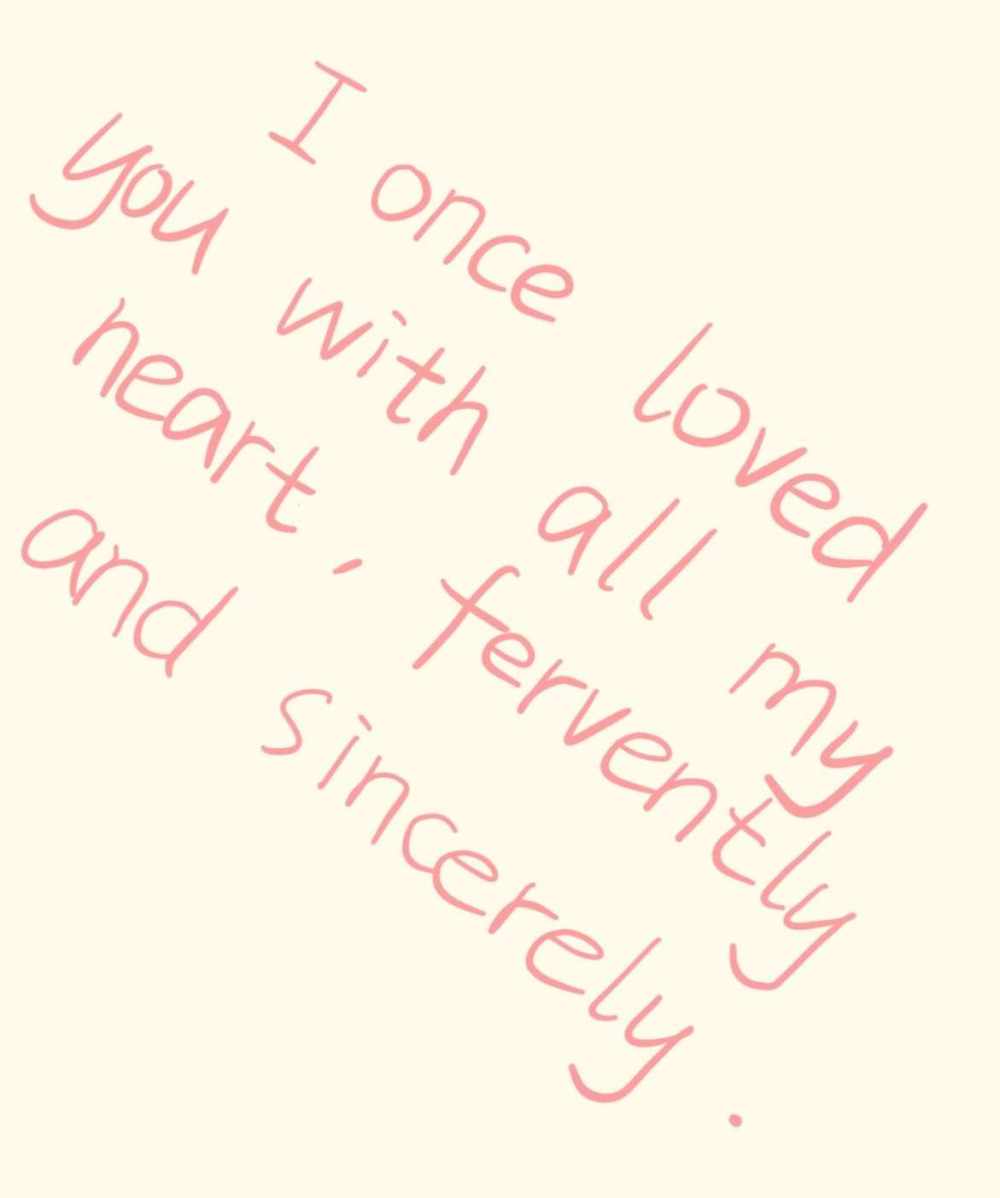 I once loved
you with all my
heart, fervently
and sincerely.